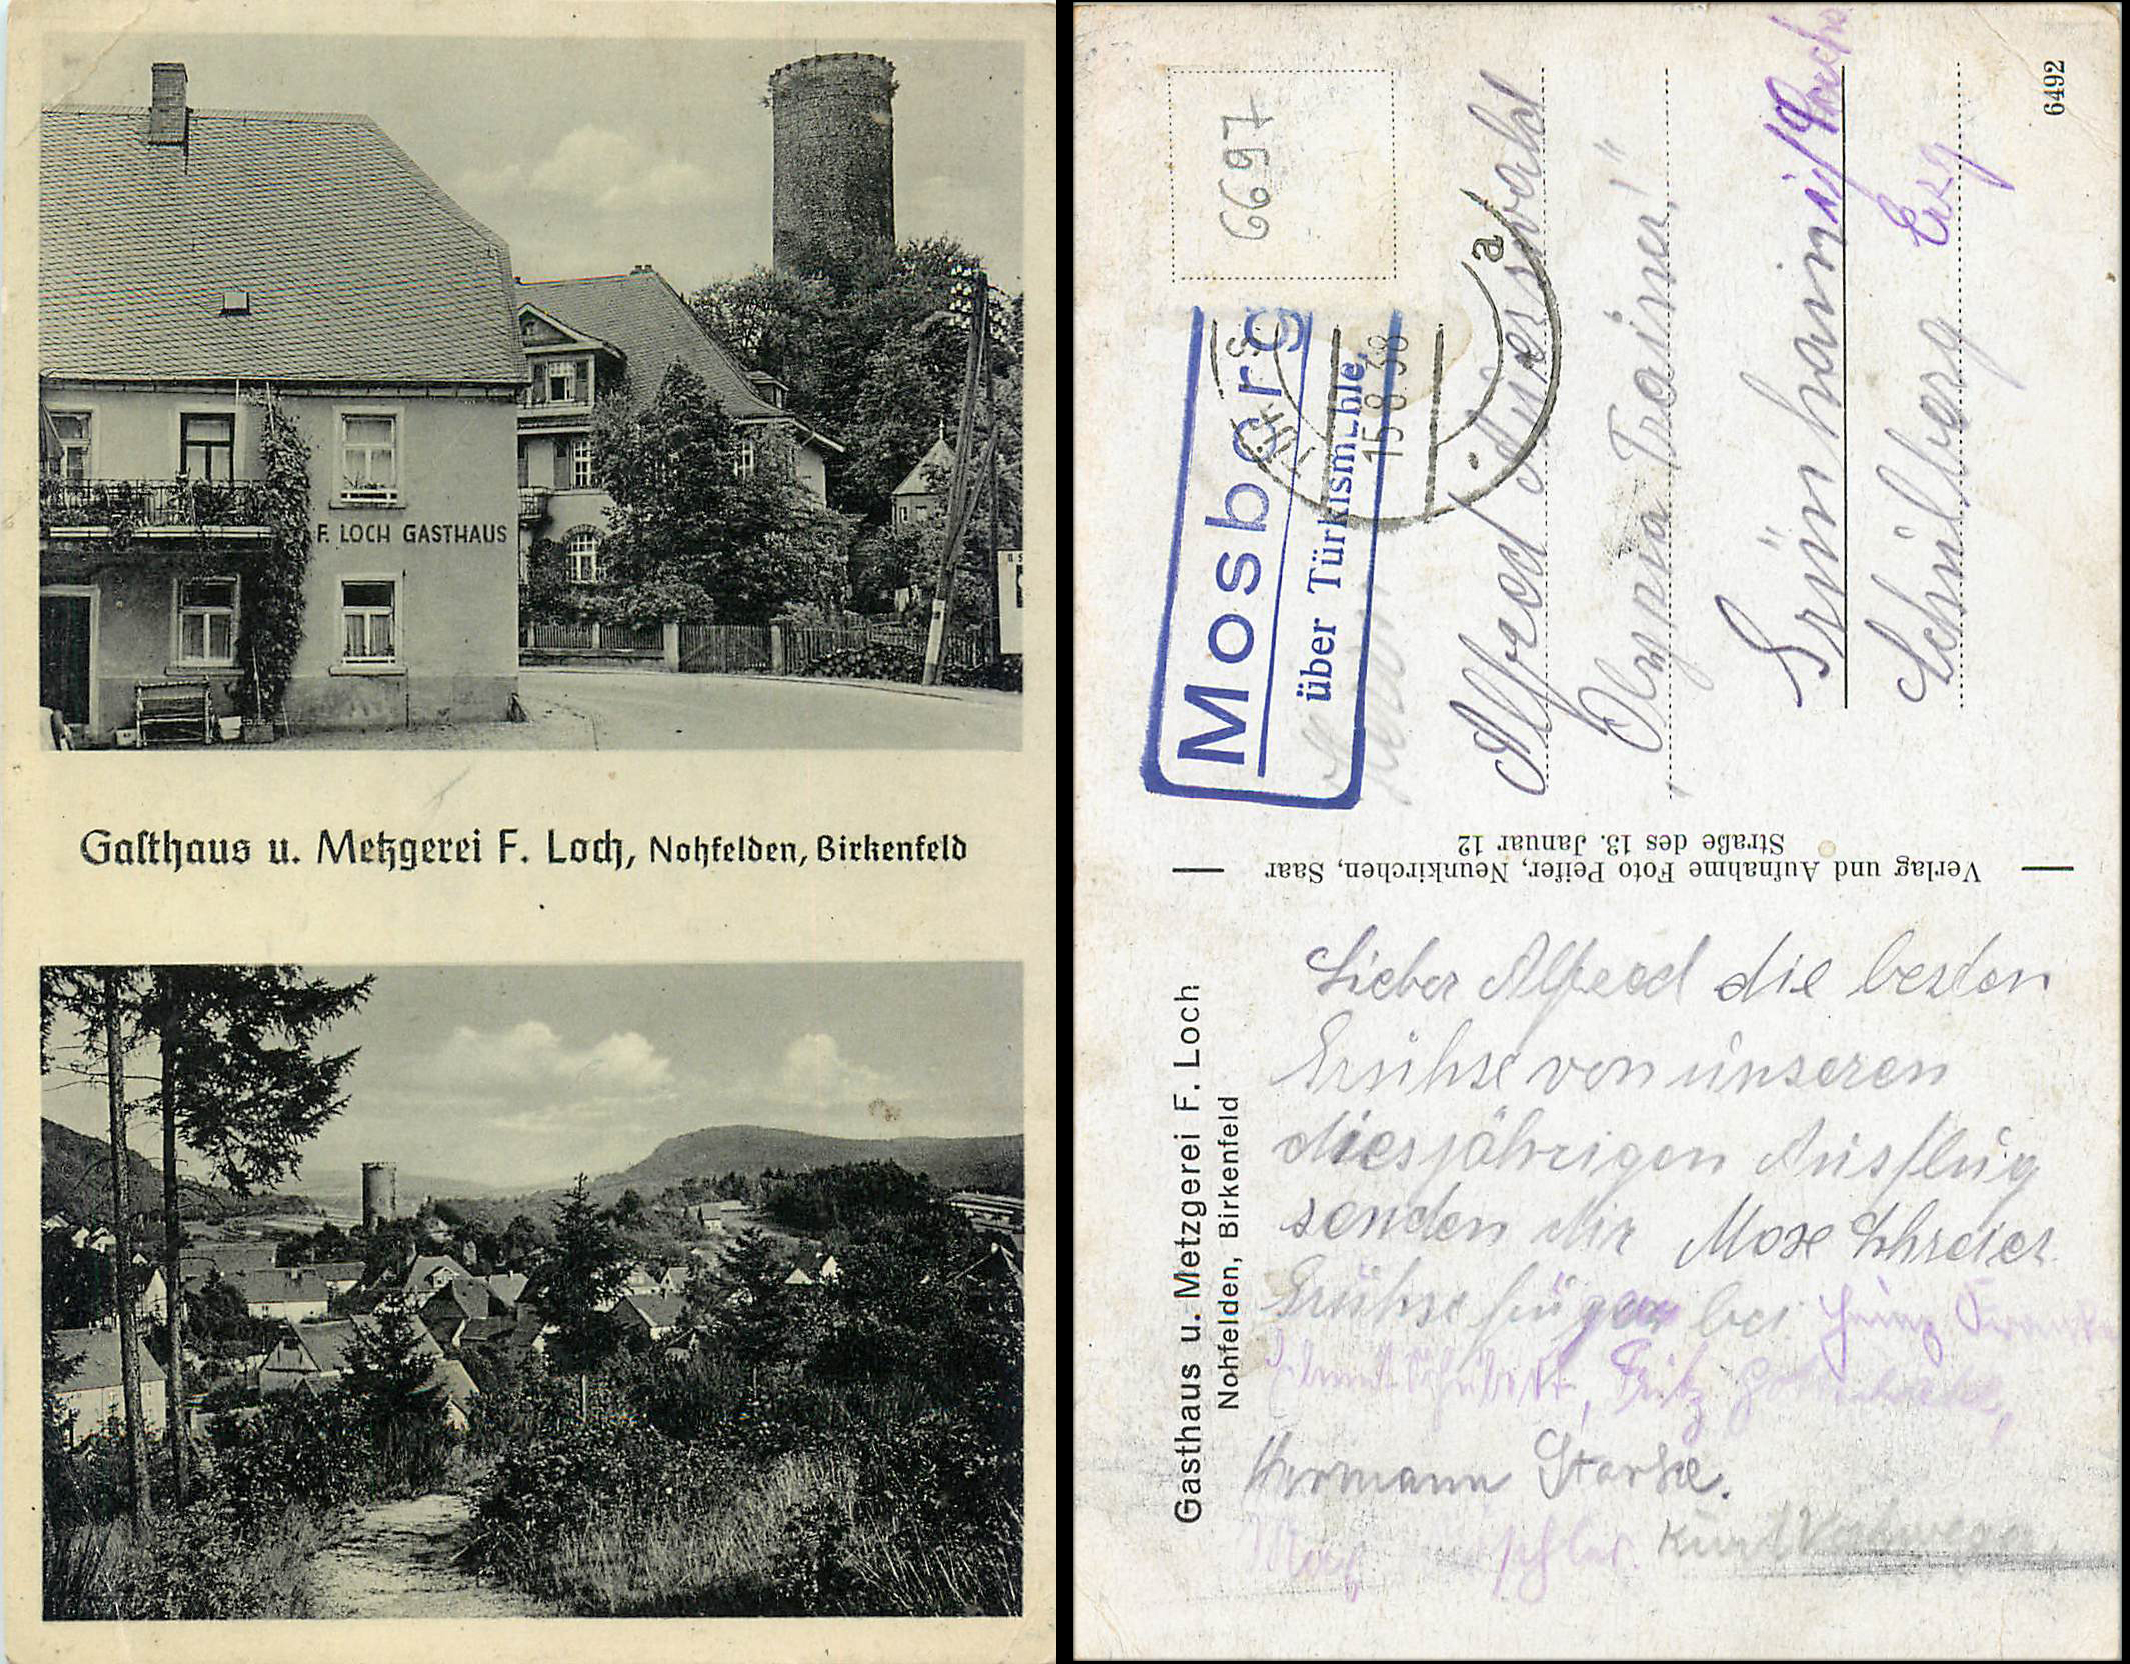 F. LOCH GASTHAUS
Gasthaus u. Metzgerei F. Loch, Nohfelden, Birkenfeld
6697
Mosberg
über Türkismühle
15.8.38
a
Herrn
Alfred Auerswald
"Olypia Trainer!"
Grünhain i/
Schulberg Erzg
6492
Verlag und Aufnahme Foto Peifer, Neunkirchen, Saar
Straße des 13. Januar 12
Gasthaus u. Metzgerei F. Loch
Nohfelden, Birkenfeld
Lieber Alfred die besten
Grühse von unseren
diesjährigen Ausflug
senden dir Max Schreier
Grühse fügen bei Heinz
Fritz
Hermann Starke.
Max Kurt